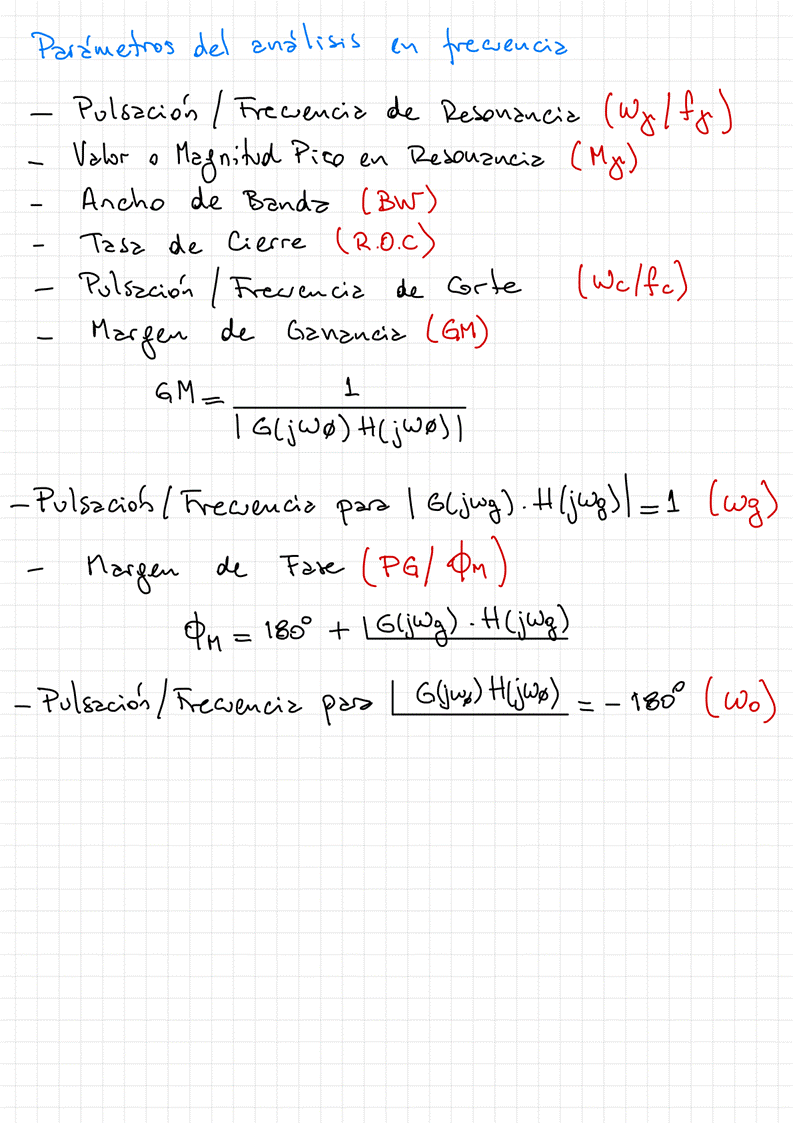 Parámetros del análisis en frecuencia
- Pulsación / Frecuencia de Resonancia (ωr/fr)
- Valor o Magnitud Pico en Resonancia (Mr)
- Ancho de Banda (BW)
- Tasa de Cierre (R.O.C)
- Pulsación / Frecuencia de Corte (ωc/fc)
- Margen de Ganancia (GM)
GM = 1 / |G(jωø) H(jωø)|
- Pulsación / Frecuencia para |G(jωg) . H(jωg)| = 1 (ωg)
- Margen de Fase (PG/ ϕM)
ϕM = 180° + ∠G(jωg) . H(jωg)
- Pulsación / Frecuencia para ∠G(jωø) H(jωø) = - 180° (ωo)